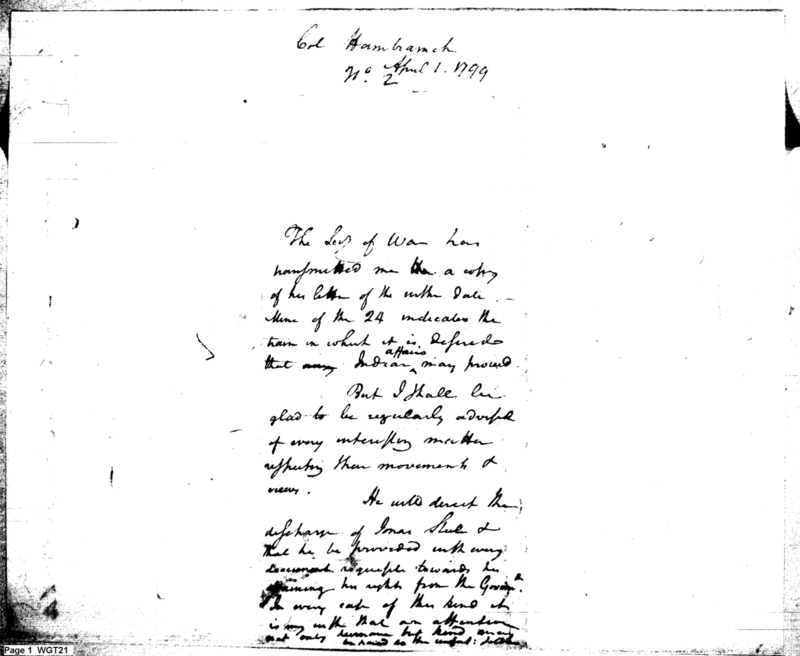 Col Hambramck
April 1. 1799
No. 2
The Secy of War has
transmitted me the a copy
of his letter of the date
Mine of the 24 indicates the
train in which it is desired
that any Indian affairs may proceed.
But I shall be
glad to be regularly advised
of every interesting matter
respecting their movements &
views.
He will direct the
discharge of Jonas &
that he be provided with every
document requisite towards his
his rights from the Governt.
In every case of this kind it
is my wish that an attention
not only humane but kind may
Page 1 WGT21